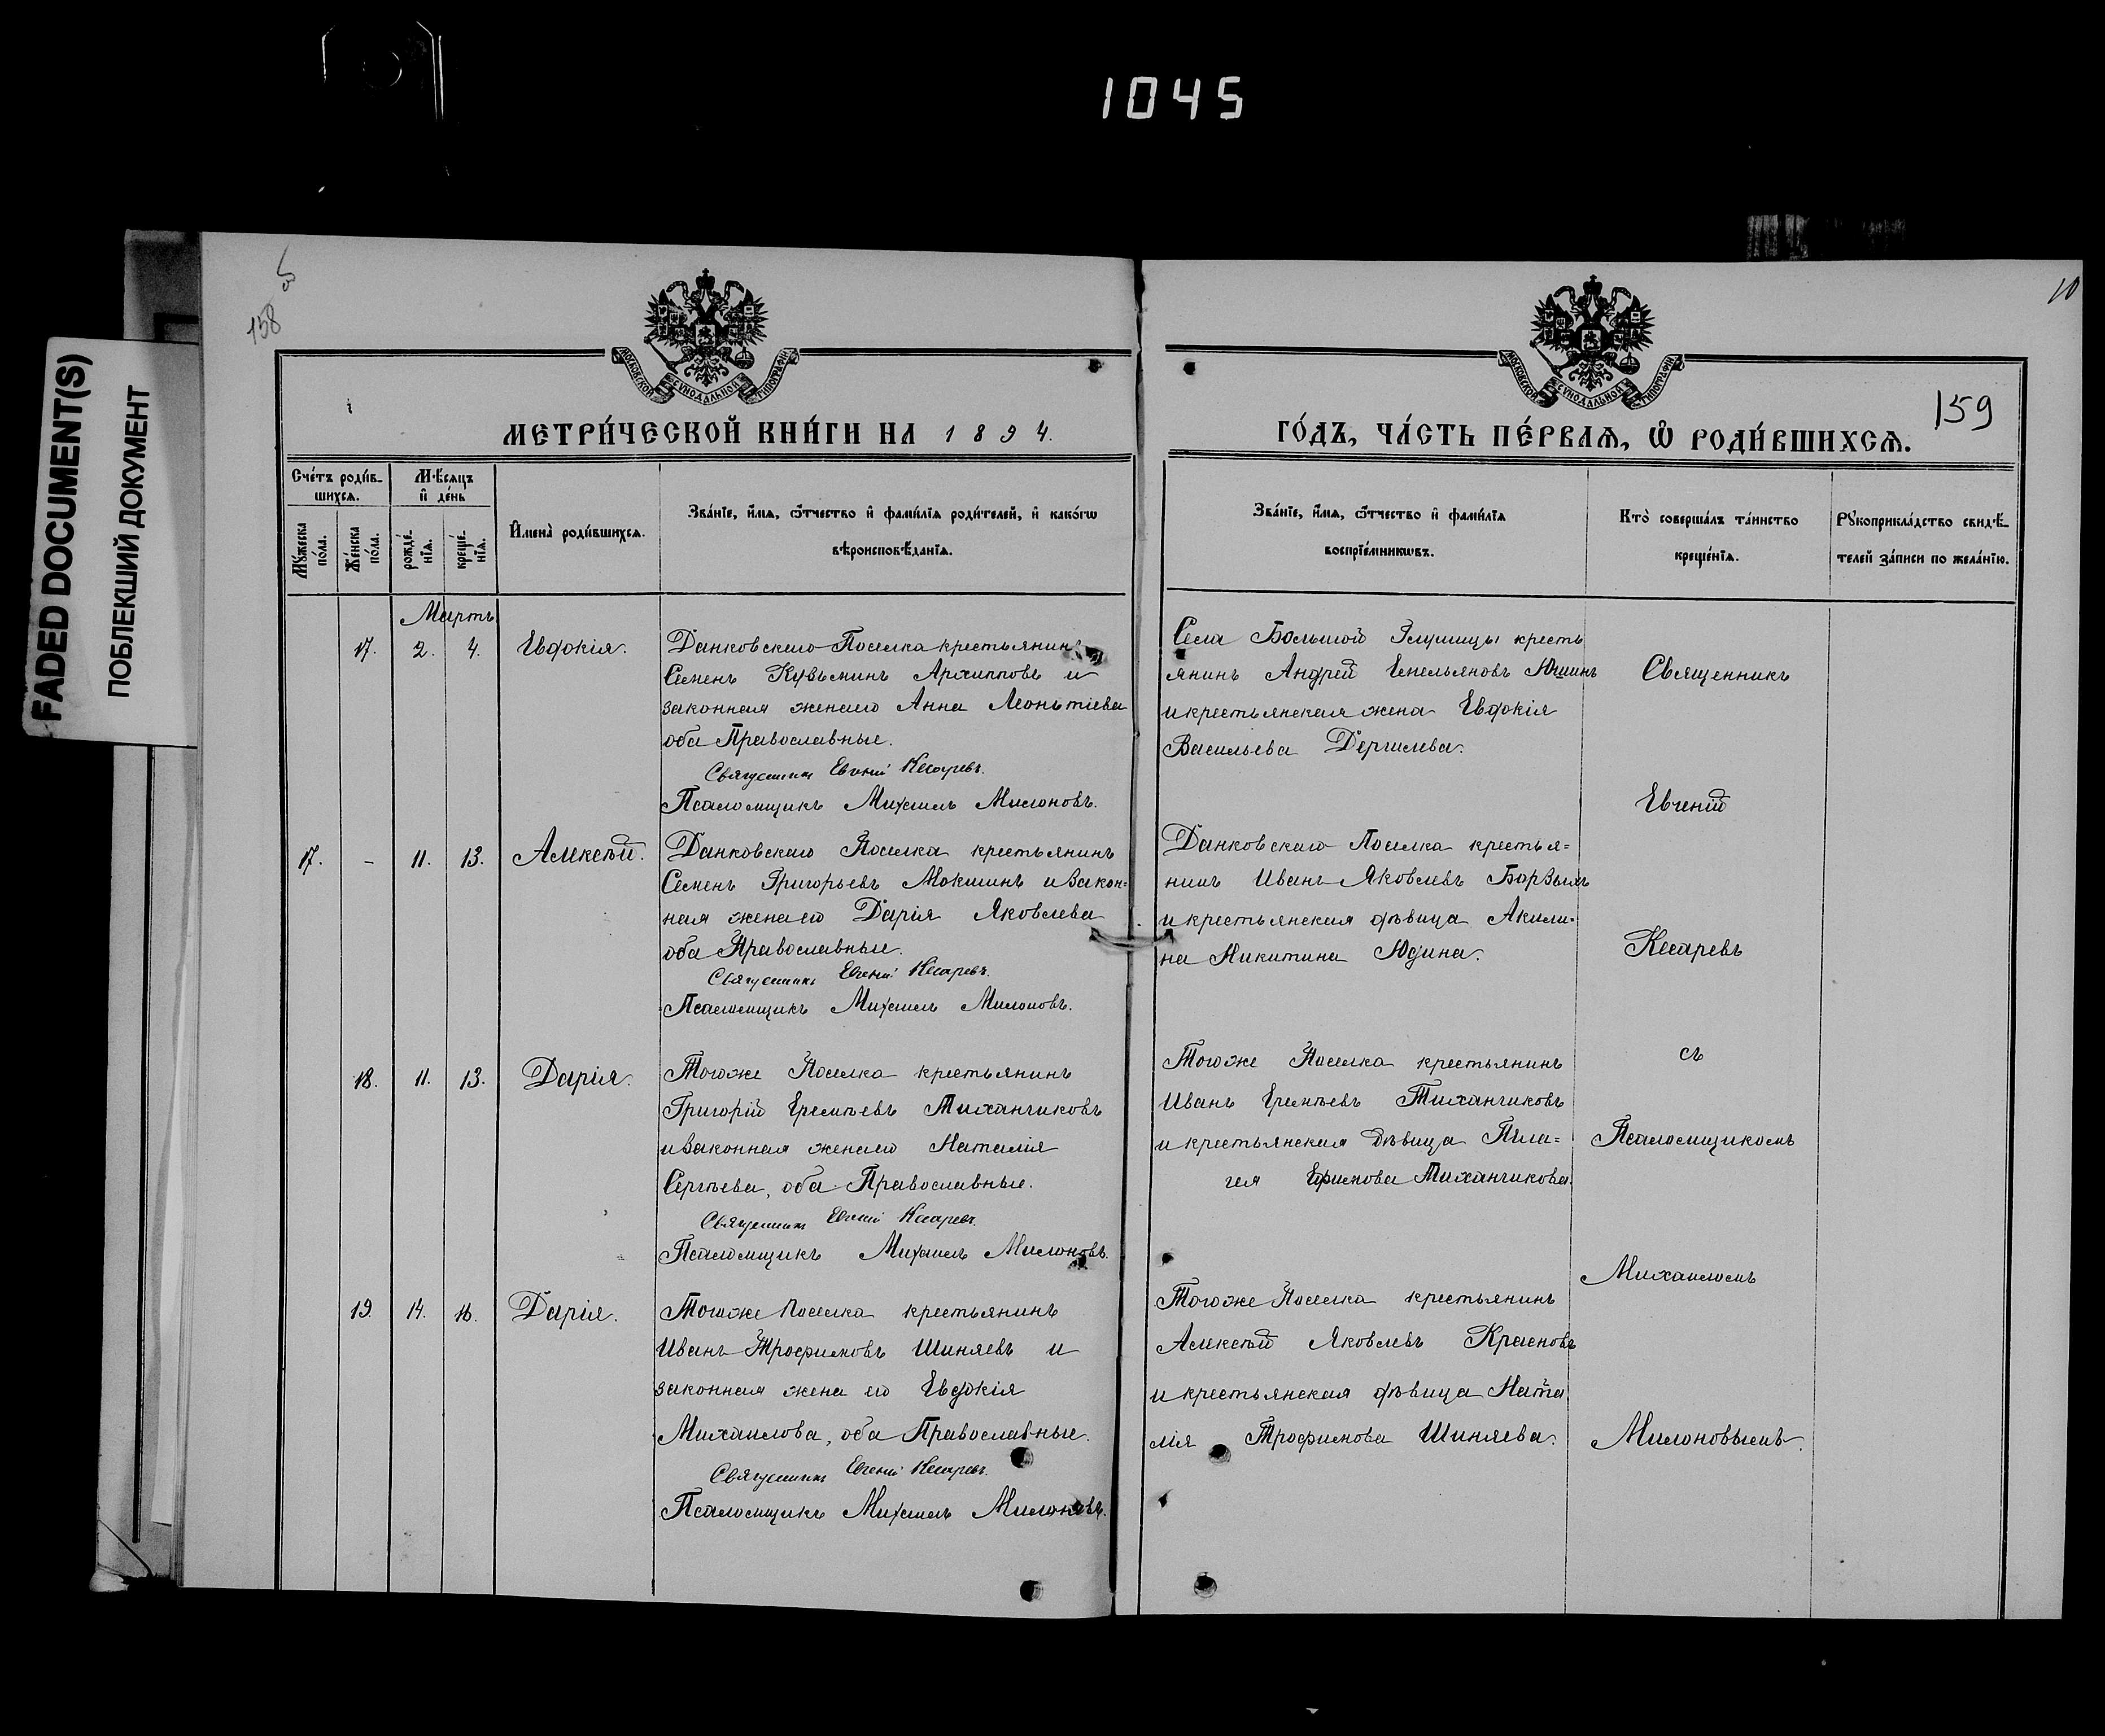 1045
FADED DOCUMENT(S)
ПОБЛЕКШИЙ ДОКУМЕНТ
158
10
159
МОСКОВСКОЙ СѴНОДАЛЬНОЙ ТИПОГРАФІИ
МОСКОВСКОЙ СѴНОДАЛЬНОЙ ТИПОГРАФІИ
МЕТРИ́ЧЕСКОЙ КНИ́ГИ НА 1894.
ГО́ДЪ, ЧА́СТЬ ПЕ́РВАѦ, Ѿ РОДИ́ВШИХСѦ.
Сче́тъ роди́в-
шихсѧ.
Мѣ́сѧцъ
и҆ де́нь
Мꙋ́жеска по́ла.
Же́нска по́ла.
рожде́-нїѧ.
креще́-нїѧ.
И҆мена̀ роди́вшихсѧ.
Зва́нїе, и҆́мѧ, ѻ҆́тчество и҆ фами́лїѧ роди́телей, и҆ како́гѡ
вѣроисповѣ́данїѧ.
Зва́нїе, и҆́мѧ, ѻ҆́тчество и҆ фами́лїѧ
воспрїе́мникѡвъ.
Кто̀ соверша́лъ та́инство
креще́нїѧ.
Рꙋкоприкла́дство свидѣ́-
телей за́писи по жела́нїю.
Мартъ
17. 2. 4. Евдокія.
Данковскаго Поселка крестьянинъ
Семенъ Кузьминъ Архиповъ и
законная жена его Анна Леонтіева
оба Православные.
Священникъ Евгеній Кесаревъ.
Псаломщикъ Михаилъ Милоновъ.
Села Большой кресть
янинъ Андрей Емельяновъ Юшинъ
и крестьянская жена Евдокія
Васильева
17. - 11. 13. Алексѣй.
Данковскаго Поселка крестьянинъ
Семенъ Григорьевъ Мокшинъ и закон=
ная жена его Дарія Яковлева
оба Православные.
Священникъ Евгеній Кесаревъ.
Псаломщикъ Михаилъ Милоновъ.
Данковскаго Поселка крестья=
нинъ Иванъ Яковлевъ
и крестьянская дѣвица Акили=
на Никитина Юдина.
18. 11. 13. Дарія.
Тогоже Поселка крестьянинъ
Григорій Еремѣевъ Тиханчиковъ
и законная жена его Наталія
Сергѣева, оба Православные.
Священникъ Евгеній Кесаревъ.
Псаломщикъ Михаилъ Милоновъ.
Тогоже Поселка крестьянинъ
Иванъ Еремѣевъ Тиханчиковъ
и крестьянская дѣвица Пела=
гея Ефимова Тиханчикова.
19. 14. 16. Дарія.
Тогоже Поселка крестьянинъ
Иванъ Трофимовъ Шиняевъ и
законная жена его Евдокія
Михаилова, оба Православные.
Священникъ Евгеній Кесаревъ.
Псаломщикъ Михаилъ Милоновъ.
Тогоже Поселка крестьянинъ
Алексѣй Яковлевъ Красновъ
и крестьянская дѣвица Ната
лія Трофимова Шиняева.
Священникъ
Евгеній
Кесаревъ
съ
Псаломщикомъ
Михаиломъ
Милоновымъ.